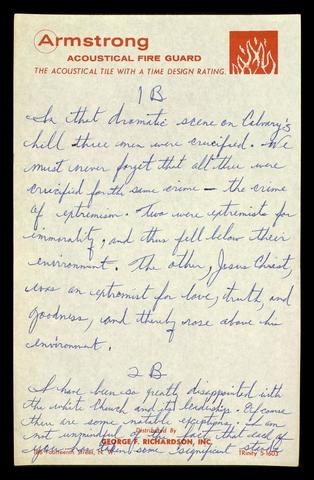 Armstrong
ACOUSTICAL FIRE GUARD
THE ACOUSTICAL TILE WITH A TIME DESIGN RATING.
1 B
In that dramatic scene on Calvary's
hill three men were crucified. We
must never forget that all three were
crucified for the same crime — the crime
of extremism. Two were extremists for
immorality, and thus fell below their
environment. The other, Jesus Christ,
was an extremist for love, truth, and
goodness, and thereby rose above his
environment.
2 B
I have been so greatly disappointed with
the white church and its leadership. Of course
there are some notable exceptions. I am
not unmindful of the fact that each of
you has taken some significant stands
Distributed By
GEORGE F. RICHARDSON, INC.
Fourteenth Street, N. W.
TRinity 5-1603